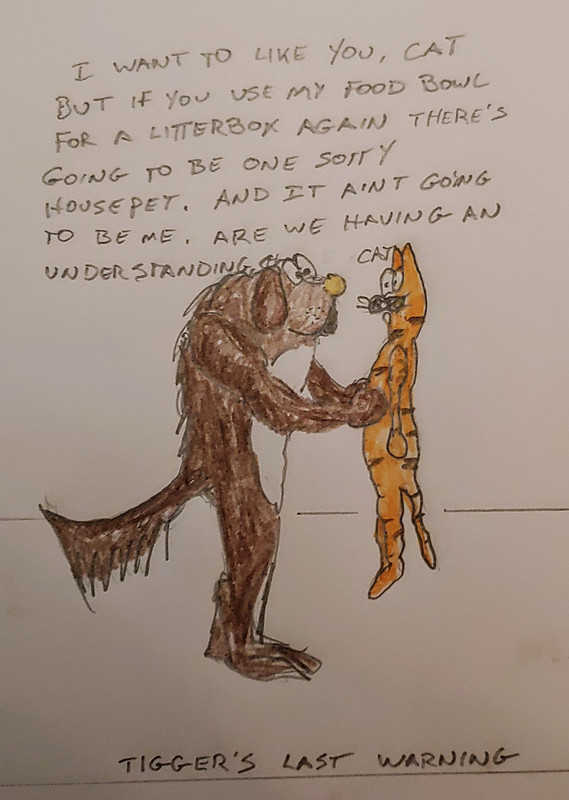 I WANT TO LIKE YOU, CAT
BUT IF YOU USE MY FOOD BOWL
FOR A LITTERBOX AGAIN THERE'S
GOING TO BE ONE SORRY
HOUSEPET. AND IT AINT GOING
TO BE ME. ARE WE HAVING AN
UNDERSTANDING,
CAT
TIGGER'S LAST WARNING